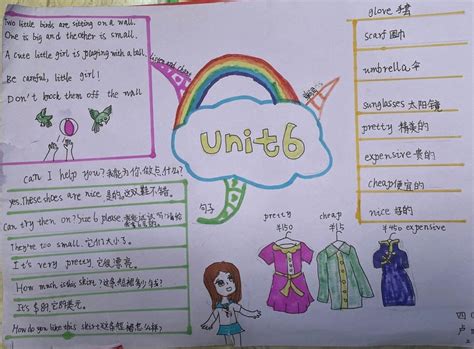 Two little birds are sitting on a wall.
One is big and the other is small.
A cute little girl is playing with a ball.
Be careful, little girl!
Don't knock them off the wall
Listen and chant
Unit6
单词
句子
glove 手套
scarf 围巾
umbrella 伞
sunglasses 太阳镜
pretty 精美的
expensive 贵的
cheap 便宜的
nice 好的
can I help you? 我能为你做点什么?
yes. These shoes are nice. 是的,这双鞋不错。
Can try them on? Size 6 please.
They're too small. 它们太小了。
It's very pretty. 它很漂亮。
How much is this skirt? 这条短裙多少钱?
How do you like this skirt
pretty
¥150
cheap
¥15
¥450 expensive
四